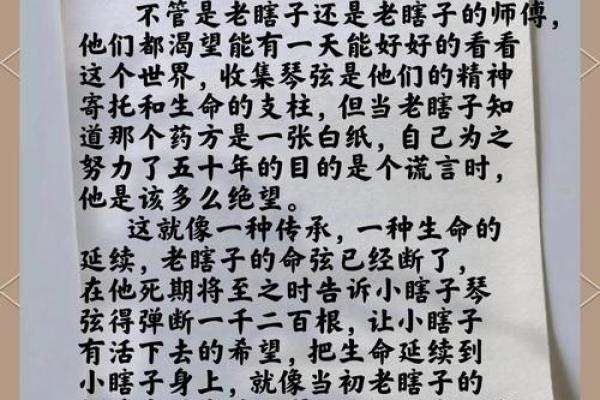 不管是老瞎子还是老瞎子的师傅，
他们都渴望能有一天能好好的看看
这个世界，收集琴弦是他们的精神
寄托和生命的支柱，但当老瞎子知
道那个药方是一张白纸，自己为之
努力了五十年的目的是个谎言时，
他是该多么绝望。
这就像一种传承，一种生命的
延续，老瞎子的命弦已经断了，
在他死期将至之时告诉小瞎子琴
弦得弹断一千二百根，让小瞎子
有活下去的希望，把生命延续到
小瞎子身上，就像当初老瞎子的